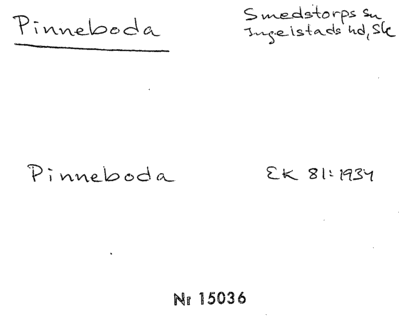 Pinneboda
Smedstorps sn
Ingelstads hd, Sk
Pinneboda
EK 81: 1934
Nr 15036